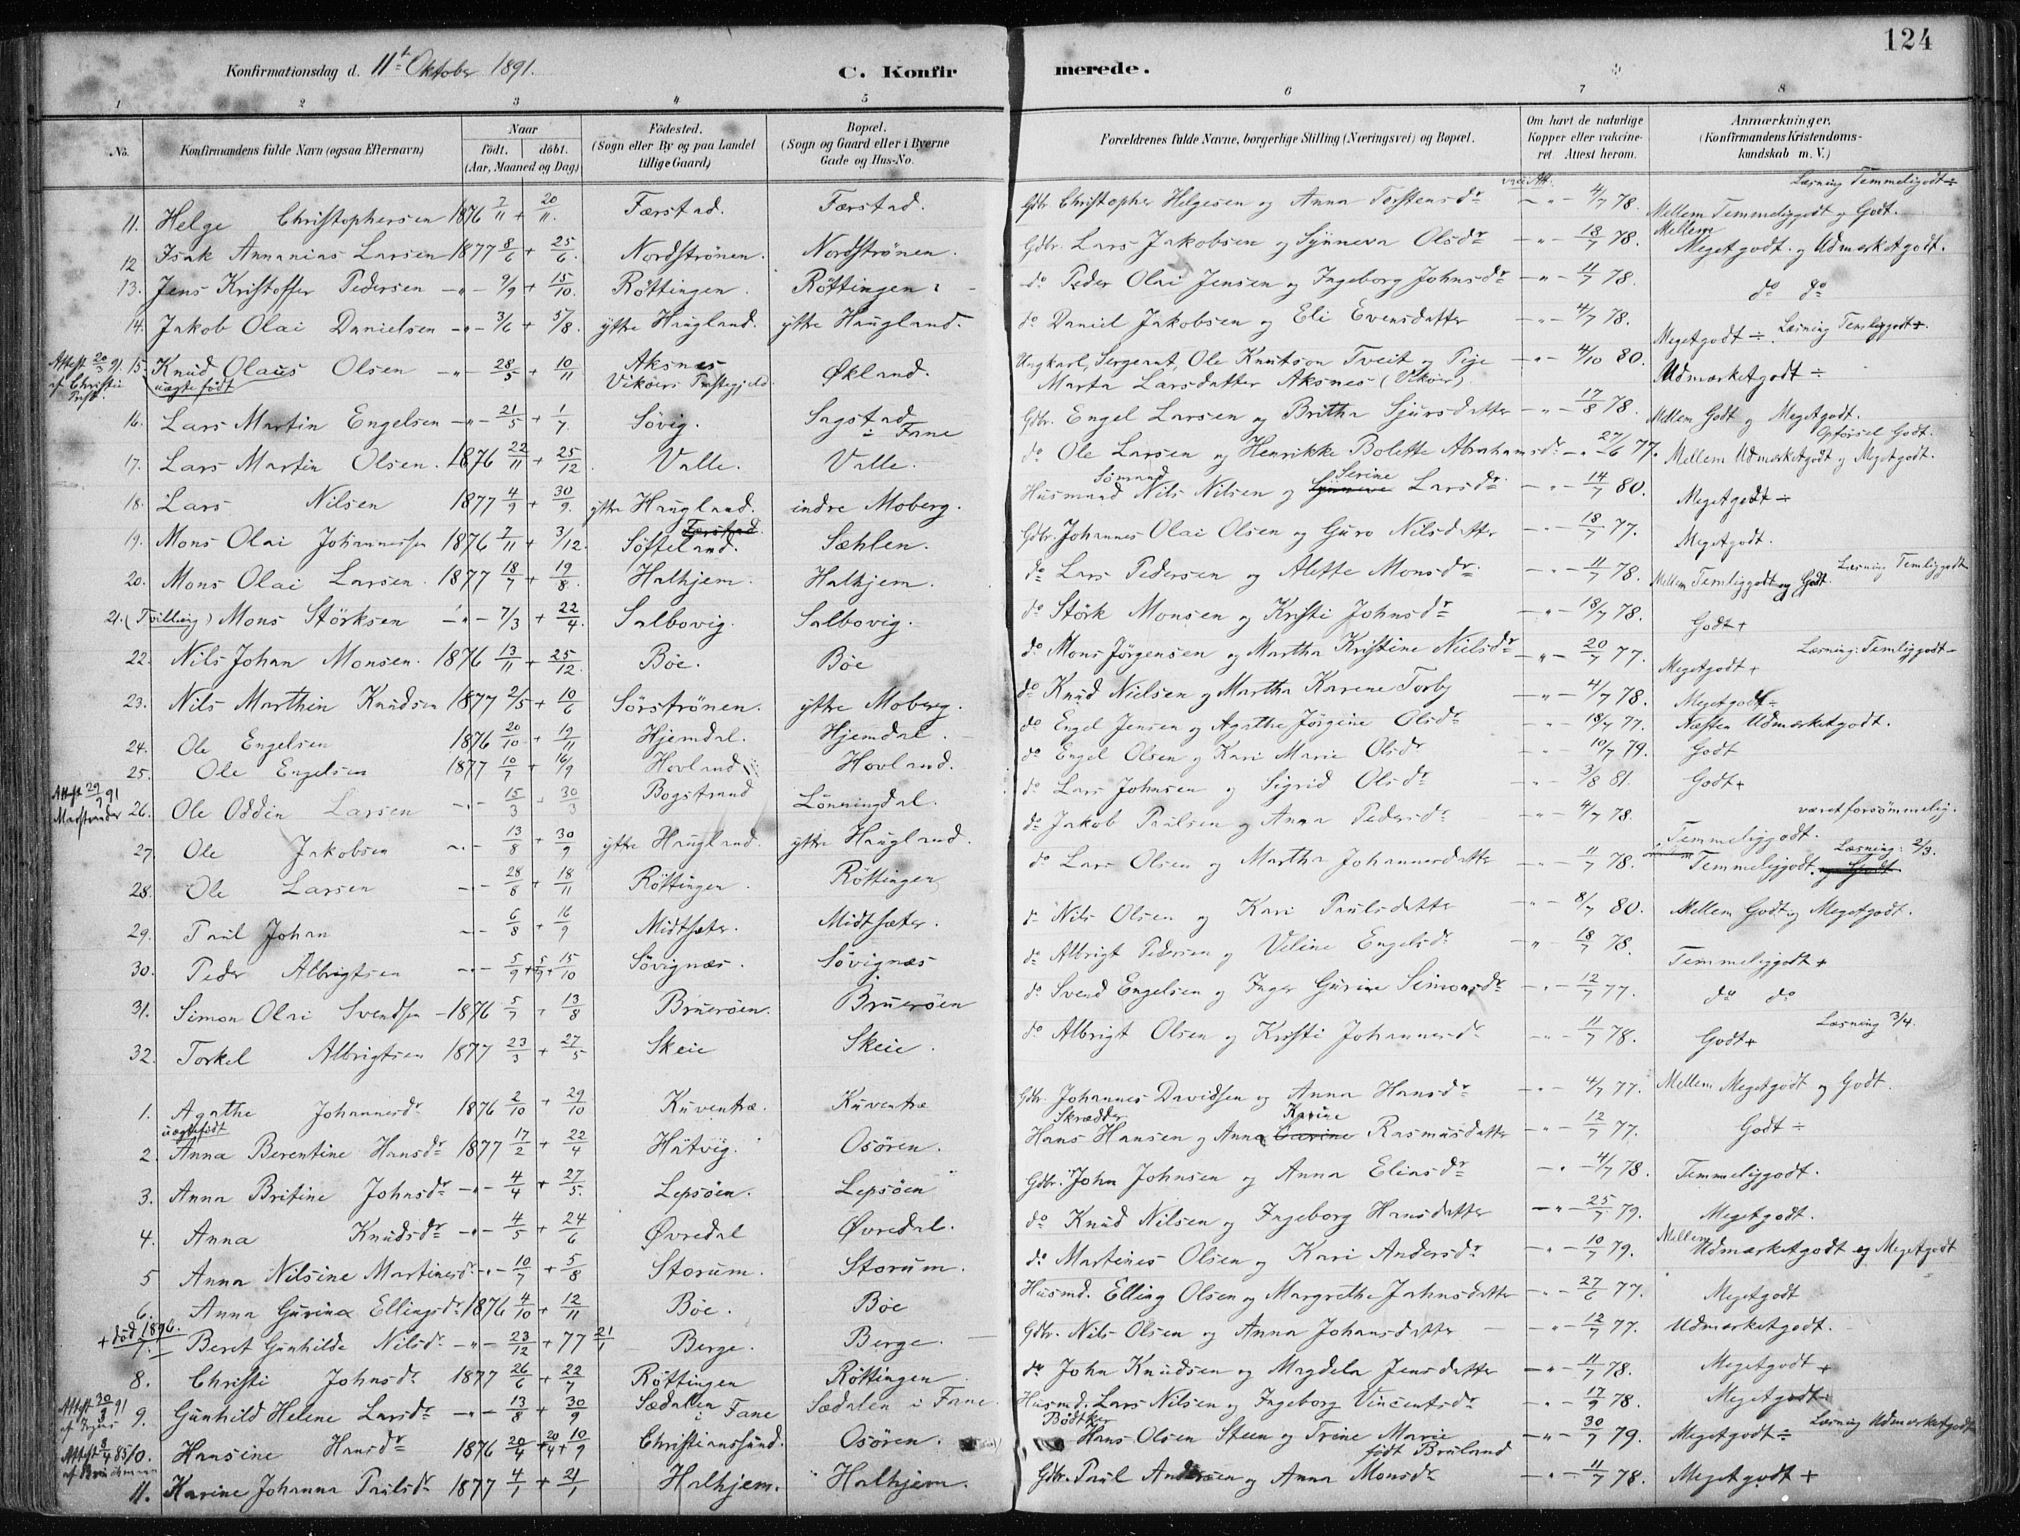 124
Konfirmationsdag d. 11te Oktober 1891. C. Konfirmerede.
1 2 3 4 5 6 7 8
No. Konfirmandens fulde Navn (ogsaa Efternavn) Naar født. døbt. (Aar, Maaned og Dag) Fødested. (Sogn eller By og paa Landet tillige Gaard) Bopæl. (Sogn og Gaard eller i Byerne Gade og Hus-No. Forældrenes fulde Navne, borgerlige Stilling (Næringsvei) og Bopæl. Om havt de naturlige Kopper eller vakcineret. Attest herom. Anmærkninger. (Konfirmandens Kristendomskundskab m. V.)
11. Helge Christophersen 1876 7/11 + 20/11. Færstad. Færstad. Gdbr Christopher Helgesen og Anna Torstensdr 4/7 78. Mellem Temmeliggodt og Godt. Læsning Temmeligodt÷
12 Isak Annanias Larsen 1877 8/6 + 25/6. Nordströnen. Nordströnen. Gdbr. Lars Jakobsen og Synneva Olsdr -"- 18/7 78. Mellem Megetgodt og Udmærketgodt.
13. Jens Kristoffer Pedersen -"- 9/9 + 15/10. Röttingen. Röttingen. do Peder Olai Jensen og Ingeborg Johnsdr -"- 11/7 78. do do
14. Jakob Olai Danielsen -"- 3/6 + 5/8. ytre Haugland. ytre Haugland. do Daniel Jakobsen og Eli Evensdatter -"- 4/7 78. Megetgodt ÷. Læsning Temliggodt+.
Attest 20/3 91. af Christie Prest. 15. Knud Olaus Olsen uægte født -"- 28/5 + 10/11 Aksnes Vikörs Præstegjeld Økland. Ungkarl, Sergeant, Ole Knutson Tveit og Pige Marta Larsdatter Aksnes (Vikör). -"- 4/10 80. Udmærketgodt ÷
16. Lars Martin Engelsen -"- 21/5 + 1/7. Sövig. Sagstad i Fane Gdbr. Engel Larsen og Britha Sjursdatter -"- 17/8 78. Mellem Godt og Megetgodt.
17. Lars Martin Olsen. 1876 22/11 + 25/12. Valle. Valle. do Ole Larsen og Henrikke Bolette Abrahamsdr -"- 27/6 77. Mellem Udmærketgodt og Megetgodt. Opförsel Godt.
18. Lars Nilsen 1877 4/9 + 30/9. ytre Haugland. indre Moberg. Husmand Sömand Nils Nilsen og Serine Larsdr -"- 14/7 80. Megetgodt ÷
19. Mons Olai Johannessen 1876 7/11 + 3/12. Færstad. Söfteland. Sæhlen. Gdbr. Johannes Olai Olsen og Guro Nilsdatter -"- 18/7 77. Megetgodt.
20. Mons Olai Larsen. 1877 18/7 + 19/8. Halhjem. Halhjem. do Lars Pedersen og Alette Monsdr. -"- 11/7 78. Mellem Temliggodt og Godt. Læsning Temliggodt
21. (Tvilling) Mons Störksen -"- 7/3 + 22/4. Salbovig. Salbovig. do Störk Monsen og Kristi Johnsdr -"- 18/7 78. Godt+
22. Nils Johan Monsen. 1876 13/11 + 25/12. Böe. Böe do Mons Jörgensen og Martha Kristine Nielsdr -"- 20/7 77. Megetgodt + Læsning: Temliggodt-
23. Nils Marthin Knudsen 1877 2/5 + 10/6 Sörströnen. ytre Moberg. do Knud Nielsen og Martha Karene Torby -"- 4/7 78. Megetgodt÷
24. Ole Engelsen 1876 20/10 + 19/11 Hjemdal. Hjemdal. do Engel Jensen og Agathe Jörgine Olsdr -"- 18/7 77. Næsten Udmærketgodt.
25. Ole Engelsen 1877 10/7 + 16/9 Hovland Hovland. do Engel Olsen og Kari Marie Olsdr -"- 10/7 79. Godt
Attest 29/9 91 Marstrander 26. Ole Oddin Larsen -"- 15/3 + 30/3 Bogstrand Lönningdal. do Lars Johnsen og Sigrid Olsdr " 3/8 81. Godt+
27. Ole Jakobsen -"- 13/8 + 30/9 ytre Haugland. ytre Haugland. do Jakob Paulsen og Anna Pedersdr -"- 4/7 78. Temmeliggodt. været forsömmelig.
28. Ole Larsen -"- 28/8 + 18/11 Röttingen. Röttingen do Lars Olsen og Martha Johannesdatter -"- 11/7 78. Temmeliggodt. og Godt Læsning: 2/3.
29. Paul Johan -"- 6/8 + 16/9 Midtsæter. Midtsæter. do Nils Olsen og Kari Paulsdatter -"- 8/7 80. Mellem Godt og Megetgodt.
30. Peder Albrigtsen -"- 5/9 + 5/9 + 15/10 Sövignæs. Sövignæs do Albrigt Pedersen og Veline Engelsdr -"- 18/7 78. Temmeliggodt +
31. Simon Olai Svendsen -1876 5/7 + 13/8 Brueröen. Bruerøen do Svend Engelsen og Inger Gurine Simonsdr -"- 12/7 77. do do
32. Torkel Albrigtsen 1877 23/3 + 27/5 Skeie Skeie. do Albrigt Olsen og Kristi Johannesdr -"- 11/7 78. Godt+ Læsning 3/4.
1. Agathe Johannesdr 1876 2/10 + 29/10 Kuventræ. Kuventræ Gdbr. Johannes Davidsen og Anna Hansdr -"- 4/7 77. Mellem Megetgodt og Godt.
2. uægtefödt Anna Berentine Hansdr 1877 17/2 + 22/4 Hatvig. Osören. Skrædder Hans Hansen og Anna Karine Rasmusdatter -"- 12/7 77. Godt ÷
3. Anna Britine Johnsdr -"- 4/4 + 27/5. Lepsöen. Lepsöen Gdbr. John Johnsen og Anna Eliasdr -"- 4/7 78. Temmeliggodt.
4. Anna Knudsdr -"- 4/5 + 24/6 Øvredal Øvredal. do Knud Nilsen og Ingeborg Hansdatter -"- 25/7 79. Megetgodt.
5 Anna Nilsine Martinesdr -"- 10/7 + 5/8 Storum. Storum. do Martines Olsen og Kari Andersdr -"- 10/7 79. Mellem Udmærketgodt og Megetgodt
6. Anna Gurina Ellingsdr 1876 4/10 + 12/11 Böe. Böe Husmd. Elling Olsen og Margrethe Johnsdatter -"- 27/6 77. Megetgodt
+ död 1896. 7. Beret Gunhilde Nilsdr -"- 23/12 + 77 21/1 Berge. Berge. Gdbr. Nils Olsen og Anna Johansdatter -"- 12/7 77. Udmærketgodt.
8. Christi Johnsdr 1877 26/6 + 22/7 Röttingen Röttingen do John Knudsen og Magdela Jensdatter -"- 11/7 78. Megetgodt +
Attest 30/3 91 9. Gunhild Helene Larsdr -"- 13/8 + 30/9 Sædalen i Fane Sædalen i Fane. Husmd. Lars Nilsen og Ingeborg Vincentsdr -"- 17/9 78. Megetgodt÷
Attest 3/4 85 af 10. Hansine Hansdr 1876 20/4 + 20/4 + 10/9 Christianssund. Osören. Bödtker Hans Olsen Steen og Trine Marie födt Bruland -"- 30/7 79. Megetgodt ÷ Læsning Udmærketgodt
11. Karine Johanna Paulsdr 1877 4/1 + 21/1 Halhjem. Halhjem. Gdbr. Paul Andersen og Anna Monsdr -"- 11/7 78. Megetgodt +